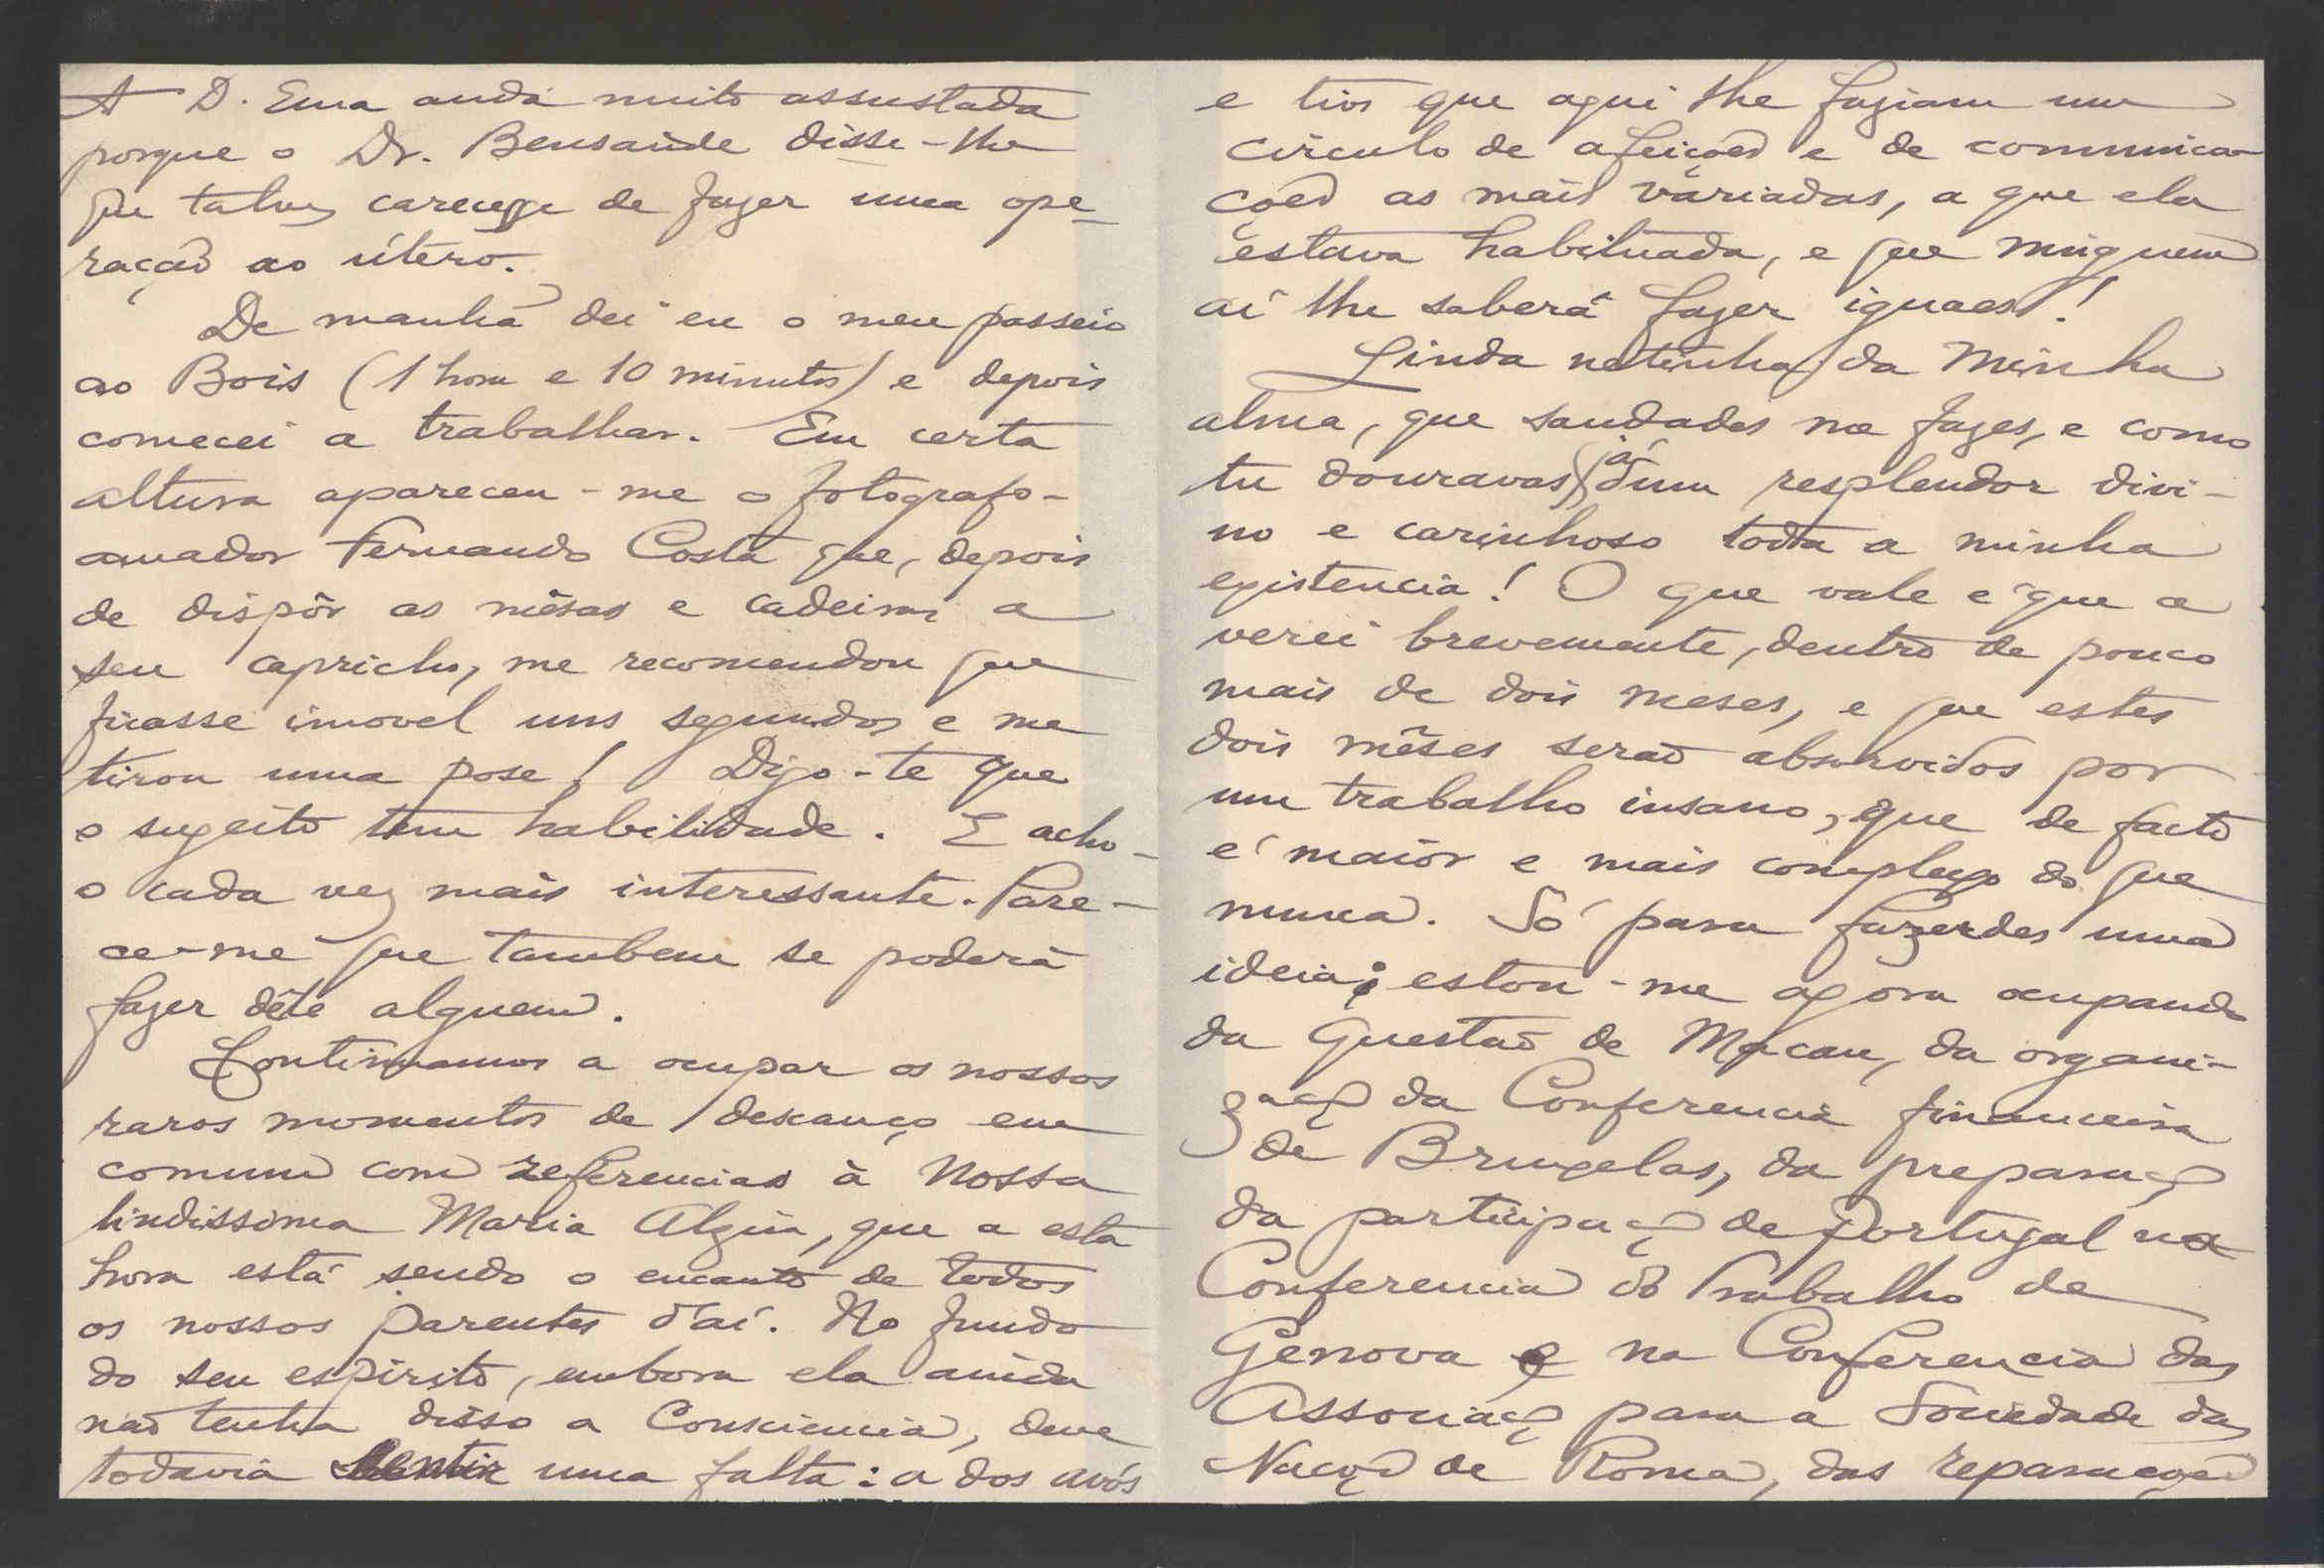 A D. Ema anda muito assustada
porque o Dr. Bensaúde disse-lhe
que talvez carecesse de fazer uma ope-
ração ao útero.
De manhã dei eu o meu passeio
ao Bois (1 hora e 10 minutos) e depois
comecei a trabalhar. Em certa
altura apareceu-me o fotografo-
amador Fernando Costa que, depois
de dispôr as mêsas e cadeiras a
seu capricho, me recomendou que
ficasse imovel uns segundos e me
tirou uma pose! Digo-te que
o sugeito tem habilidade. E acho-
o cada vez mais interessante. Pare-
ce-me que tambem se poderá
fazer dêle alguem.
Continuamos a ocupar os nossos
raros momentos de descanço em
comum com referencias à nossa
lindissima Maria Alzira, que a esta
hora está sendo o encanto de todos
os nossos parentes d'aí. No fundo
do seu espirito, embora ela ainda
não tenha disso a Consciencia, deve
todavia sentir uma falta: a dos avós
e tios que aqui lhe faziam um
circulo de afeições e de comunica-
ções as mais variadas, a que ela
estava habituada, e que ninguem
aí lhe saberá fazer iguaes!
Linda netinha da minha
alma, que saudades me fazes, e como
tu douravas já dum resplendor divi-
no e carinhoso toda a minha
existencia! O que vale é que a
verei brevemente, dentro de pouco
mais de dois meses, e que estes
dois mêses serão absorvidos por
um trabalho insano, que de facto
é maior e mais complexo do que
nunca. Só para fazerdes uma
ideia: estou-me agora ocupando
da questão de Macau, da organi-
zação da Conferencia financeira
de Bruxelas, da preparação
da participação de Portugal na
Conferencia do Trabalho de
Genova e na Conferencia das
Associações para a Sociedade das
Nações de Roma, das reparações